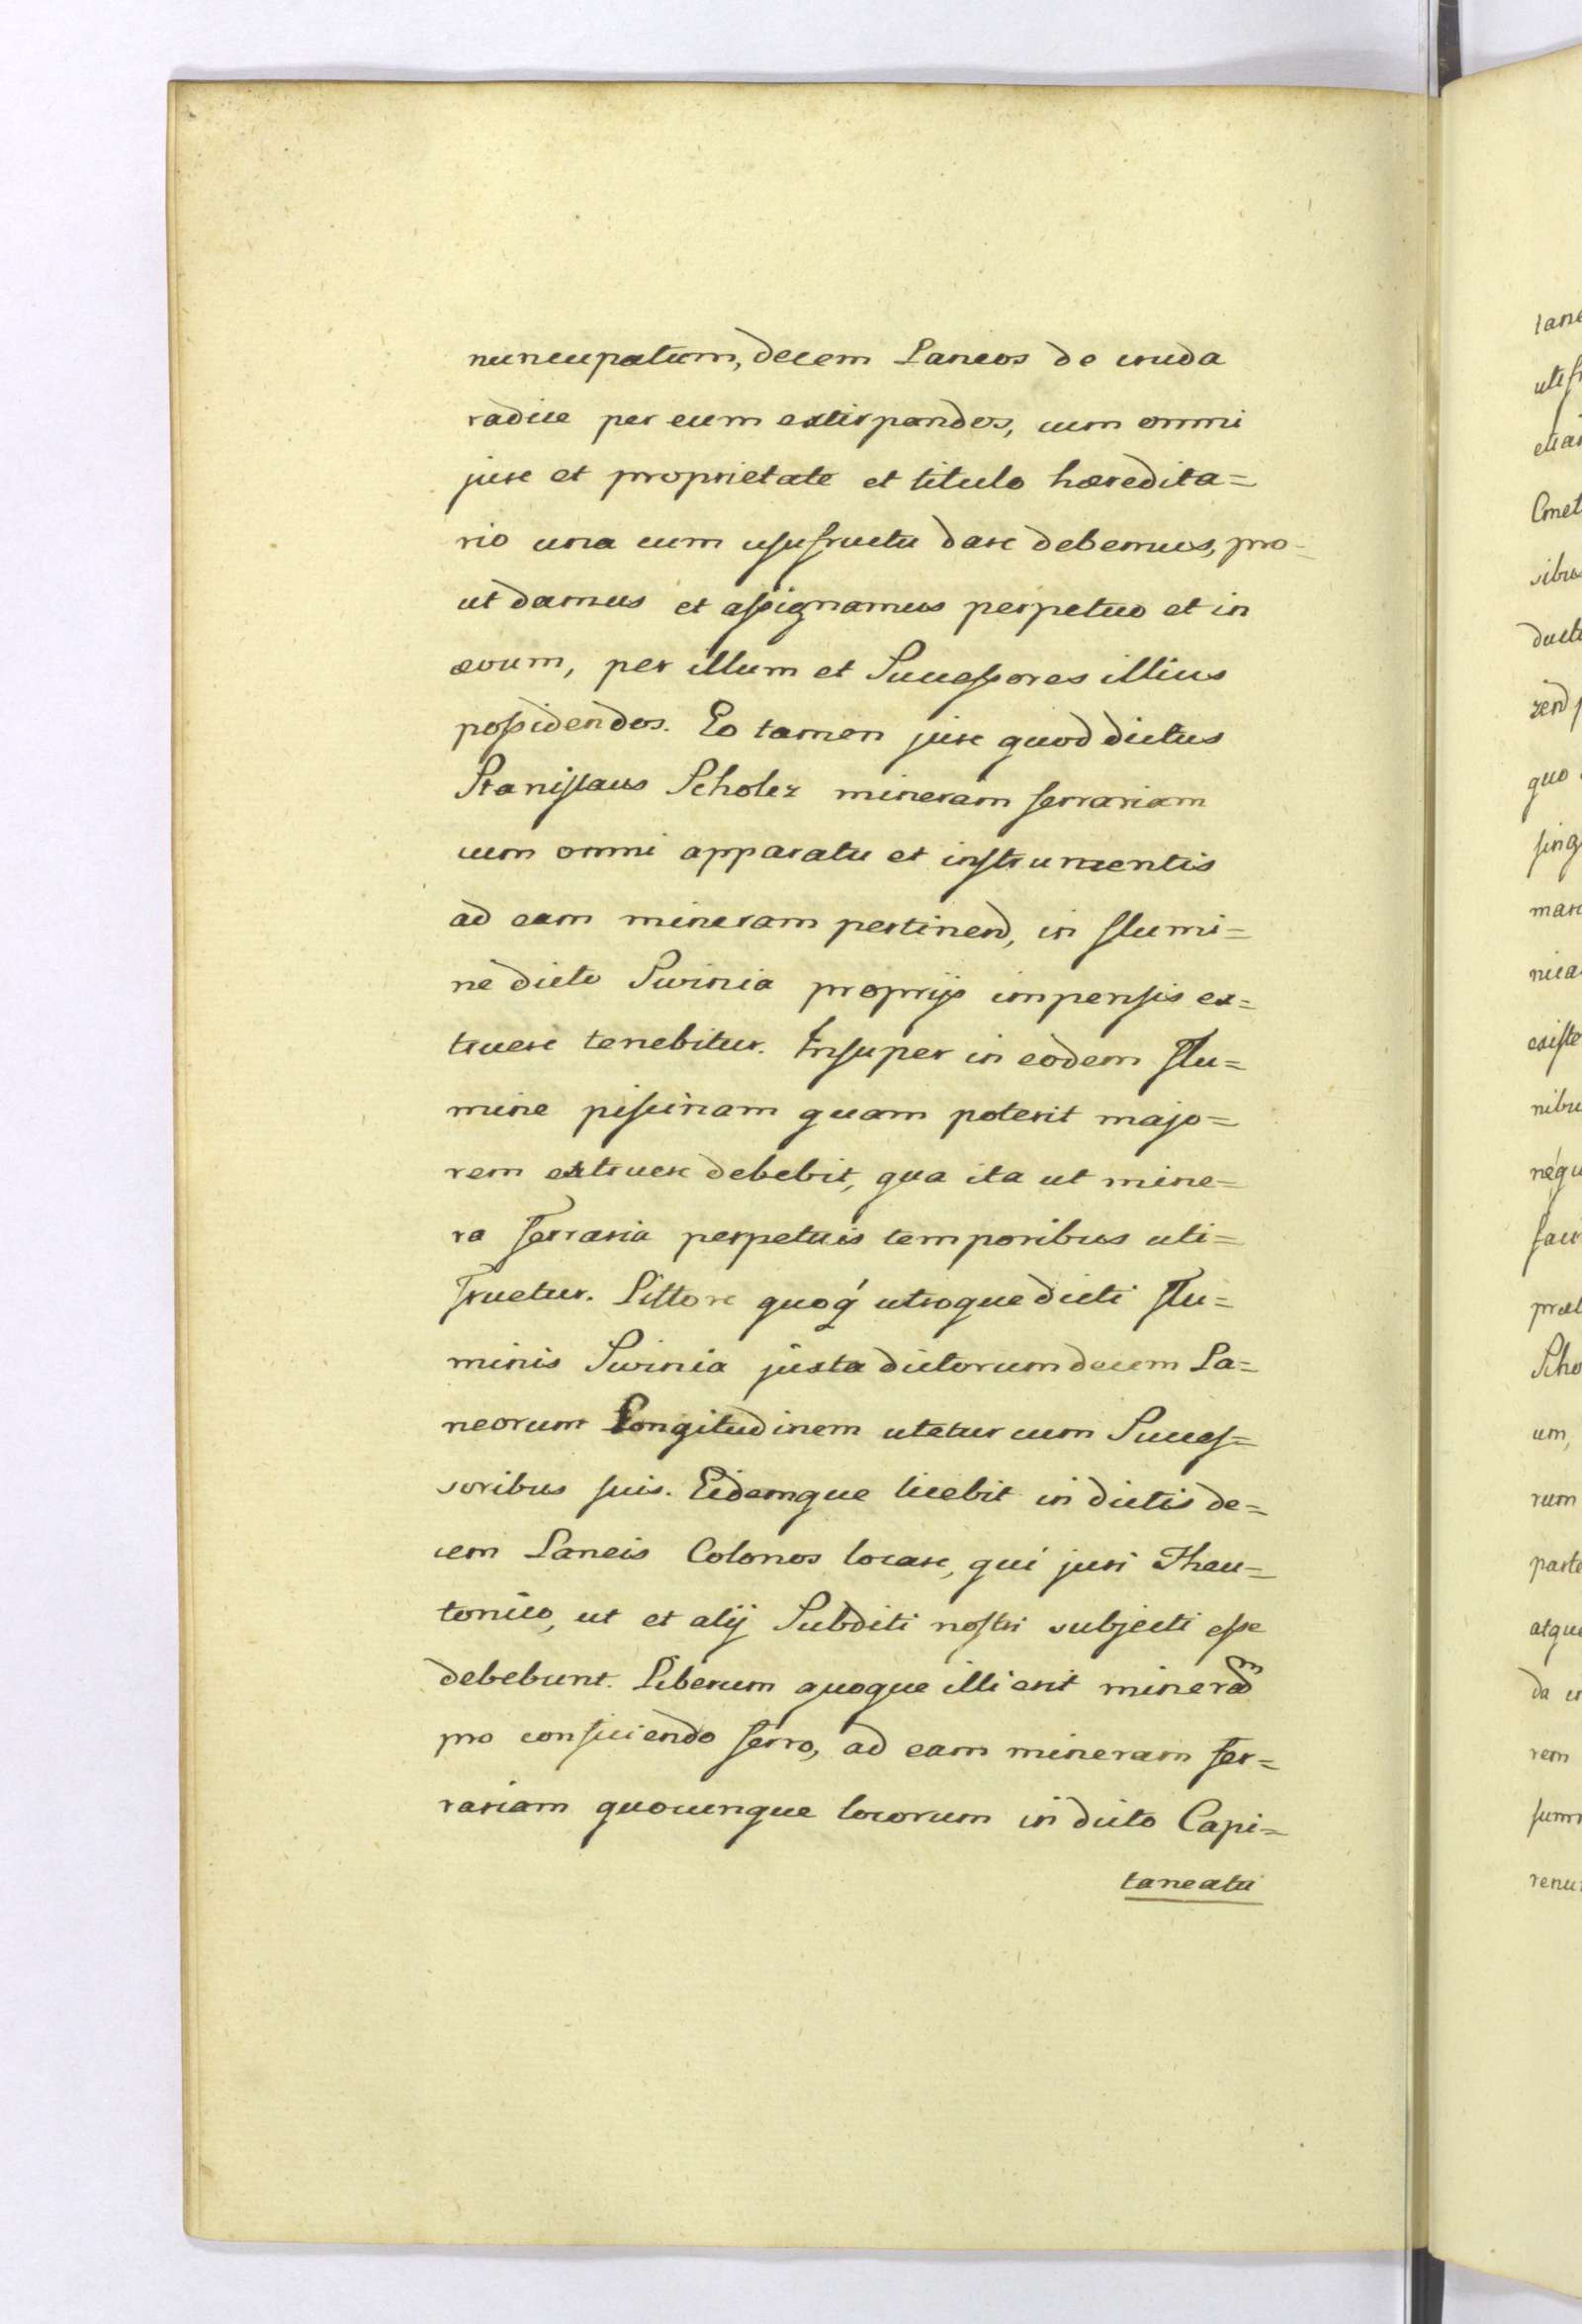 nuncupatum, decem Laneos de cruda
radice per eum extirpandos, cum omni
jure et proprietate et titulo hæredita=
rio una cum usufructu dare debemus, pro=
ut damus et assignamus perpetuo et in
ævum, per illum et Successores illius
possidendos. Eo tamen jure quod dictus
Stanislaus Scholcz mineram ferrariam
cum omni apparatu et instrumentis
ad eam mineram pertinend, in flumi=
ne dicto Swinia proprijs impensis ex=
truere tenebitur. Insuper in eodem flu=
mine piscinam quam poterit majo=
rem extruere debebit, qua ita ut mine=
ra ferraria perpetuis temporibus uti=
fruetur. Littore quoq́ utroque dicti flu=
minis Swinia juxta dictorum decem La=
neorum Longitudinem utetur cum Succes=
soribus suis. Eidemque licebit in dictis de=
cem Laneis Colonos locare, qui juri Theu=
tonico, ut et alij Subditi nostri subjecti esse
debebunt. Liberum quoque illi erit mineram
pro conficiendo ferro, ad eam mineram fer=
rariam quocunque locorum in dicto Capi=
taneatu